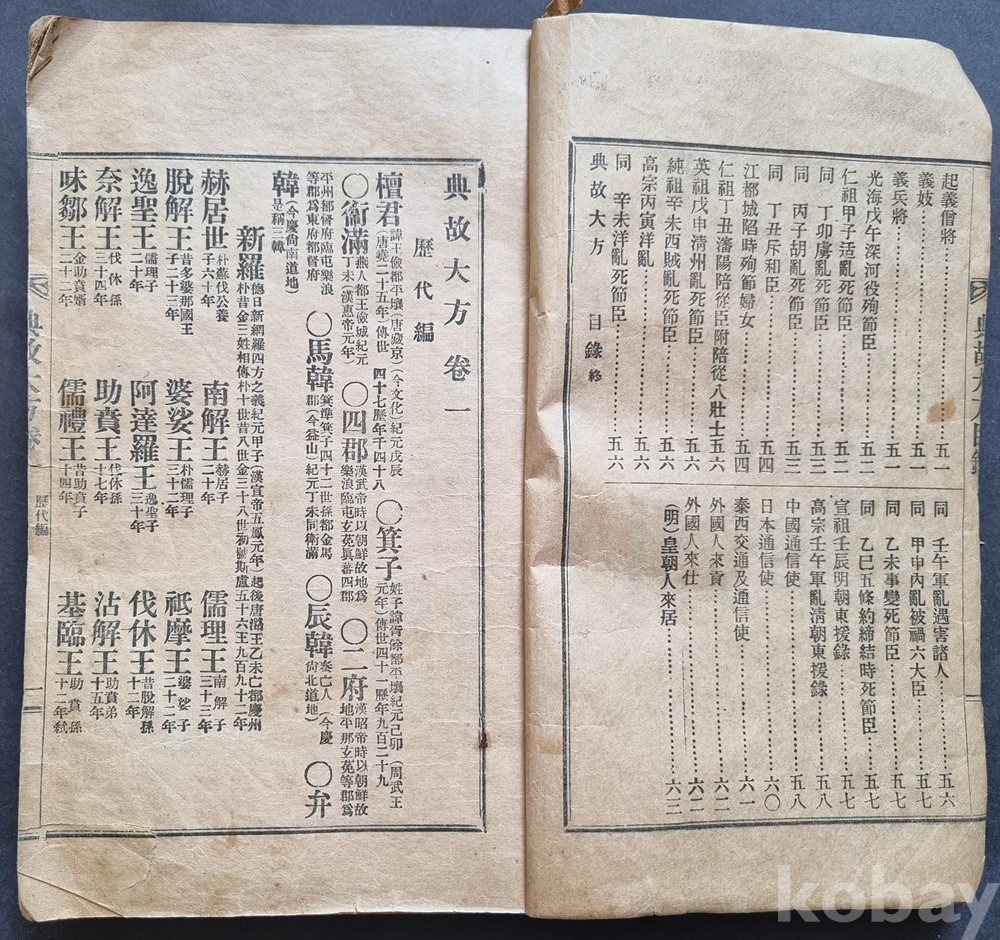 典故大方目錄
起義僧將…………五一
義妓…………五一
義兵將…………五一
光海戊午深河役殉節臣…………五二
仁祖甲子适亂死節臣…………五二
同 丁卯虜亂死節臣…………五三
同 丙子胡亂死節臣…………五三
同 丁丑斥和臣…………五四
江都城陷時殉節婦女…………五四
仁祖丁丑瀋陽陪從臣附陪從八壯士…五六
英祖戊申清州亂死節臣…………五六
純祖辛未西賊亂死節臣…………五六
高宗丙寅洋亂…………五六
同 辛未洋亂死節臣…………五六
典故大方 目錄 終
同 壬午軍亂遇害諸人…………五六
同 甲申內亂被禍六大臣…………五七
同 乙未事變死節臣…………五七
同 乙巳五條約締結時死節臣…………五七
宣祖壬辰明朝東援錄…………五七
高宗壬午軍亂清朝東援錄…………五八
中國通信使…………五八
日本通信使…………六〇
泰西交通及通信使…………六一
外國人來貢…………六二
外國人來仕…………六二
(明)皇朝人來居…………六三
典故大方 卷一
歷代編
檀君 諱王儉都平壤(唐藏京)(今文化)紀元戊辰(唐堯二十五年)傳世四十七歷年千四十八 〇箕子 姓子諱胥餘都平壤紀元己卯(周武王元年)傳世四十一歷年九百二十九
〇衞滿 燕人都王儉城紀元丁未(漢惠帝元年) 〇四郡 漢武帝時以朝鮮故地爲樂浪臨屯玄菟眞蕃四郡 〇二府 漢昭帝時以朝鮮故地平那玄菟等郡爲
平州都督府臨屯樂浪等郡爲東府都督府 〇馬韓 箕準箕子四十二世孫都金馬郡(今益山)紀元丁未同衞滿 〇辰韓 秦亡人(今慶尙北道地) 〇弁
韓 (今慶尙南道地)是稱三韓
新羅 德日新網羅四方之義紀元甲子(漢宣帝五鳳元年)起後唐潞王乙未亡都慶州朴昔金三姓相傳朴十世昔八世金三十八世初號斯盧五十六王九百九十二年
赫居世 朴蘇伐公養子六十年 南解王 赫居子二十年 儒理王 南解子三十三年
脫解王 昔多婆那國王子二十三年 婆娑王 朴儒理子三十二年 祗摩王 婆娑子二十二年
逸聖王 儒理子二十年 阿達羅王 逸聖子三十年 伐休王 昔脫解孫十二年
奈解王 伐休孫三十四年 助賁王 伐休孫十七年 沾解王 助賁弟十五年
味鄒王 金助賁壻二十二年 儒禮王 昔助賁子十四年 基臨王 助賁孫十二年弑
典故大方卷一
歷代編
一
kobay